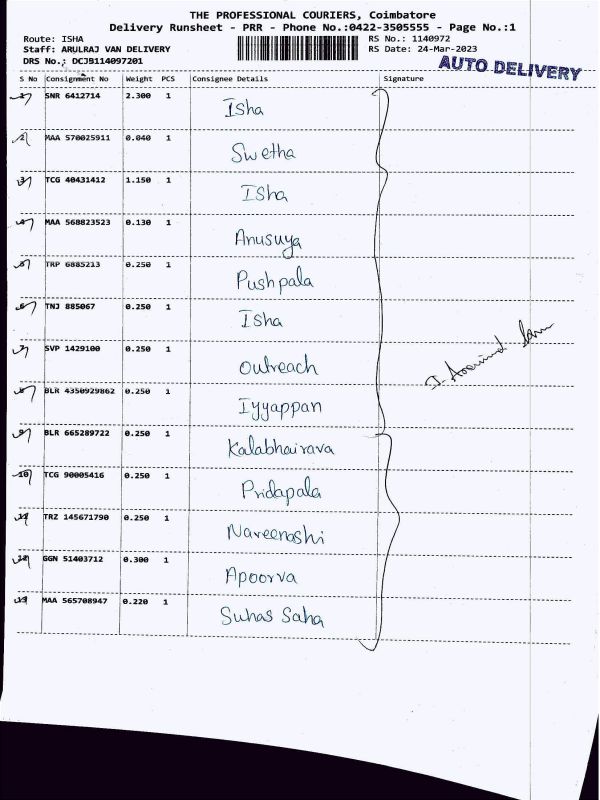 THE PROFESSIONAL COURIERS, Coimbatore
Delivery Runsheet - PRR - Phone No.:0422-3505555 - Page No.:1
Route: ISHA RS No.: 1140972
Staff: ARULRAJ VAN DELIVERY RS Date: 24-Mar-2023
DRS No.: DCJB114097201 AUTO DELIVERY
S No Consignment No Weight PCS Consignee Details Signature
1 SNR 6412714 2.300 1 Isha
2 MAA 570025911 0.040 1 Swetha
3 TCG 40431412 1.150 1 Isha
4 MAA 568823523 0.130 1 Anusuya
5 TRP 6885213 0.250 1 Pushpala
6 TNJ 885067 0.250 1 Isha
7 SVP 1429100 0.250 1 Outreach
8 BLR 4350929862 0.250 1 Iyyappan
9 BLR 665289722 0.250 1 Kalabhairava
10 TCG 90005416 0.250 1 Pridapala
11 TRZ 145671790 0.250 1 Nareenashi
12 GGN 51403712 0.300 1 Apoorva
13 MAA 565708947 0.220 1 Suhas Saha